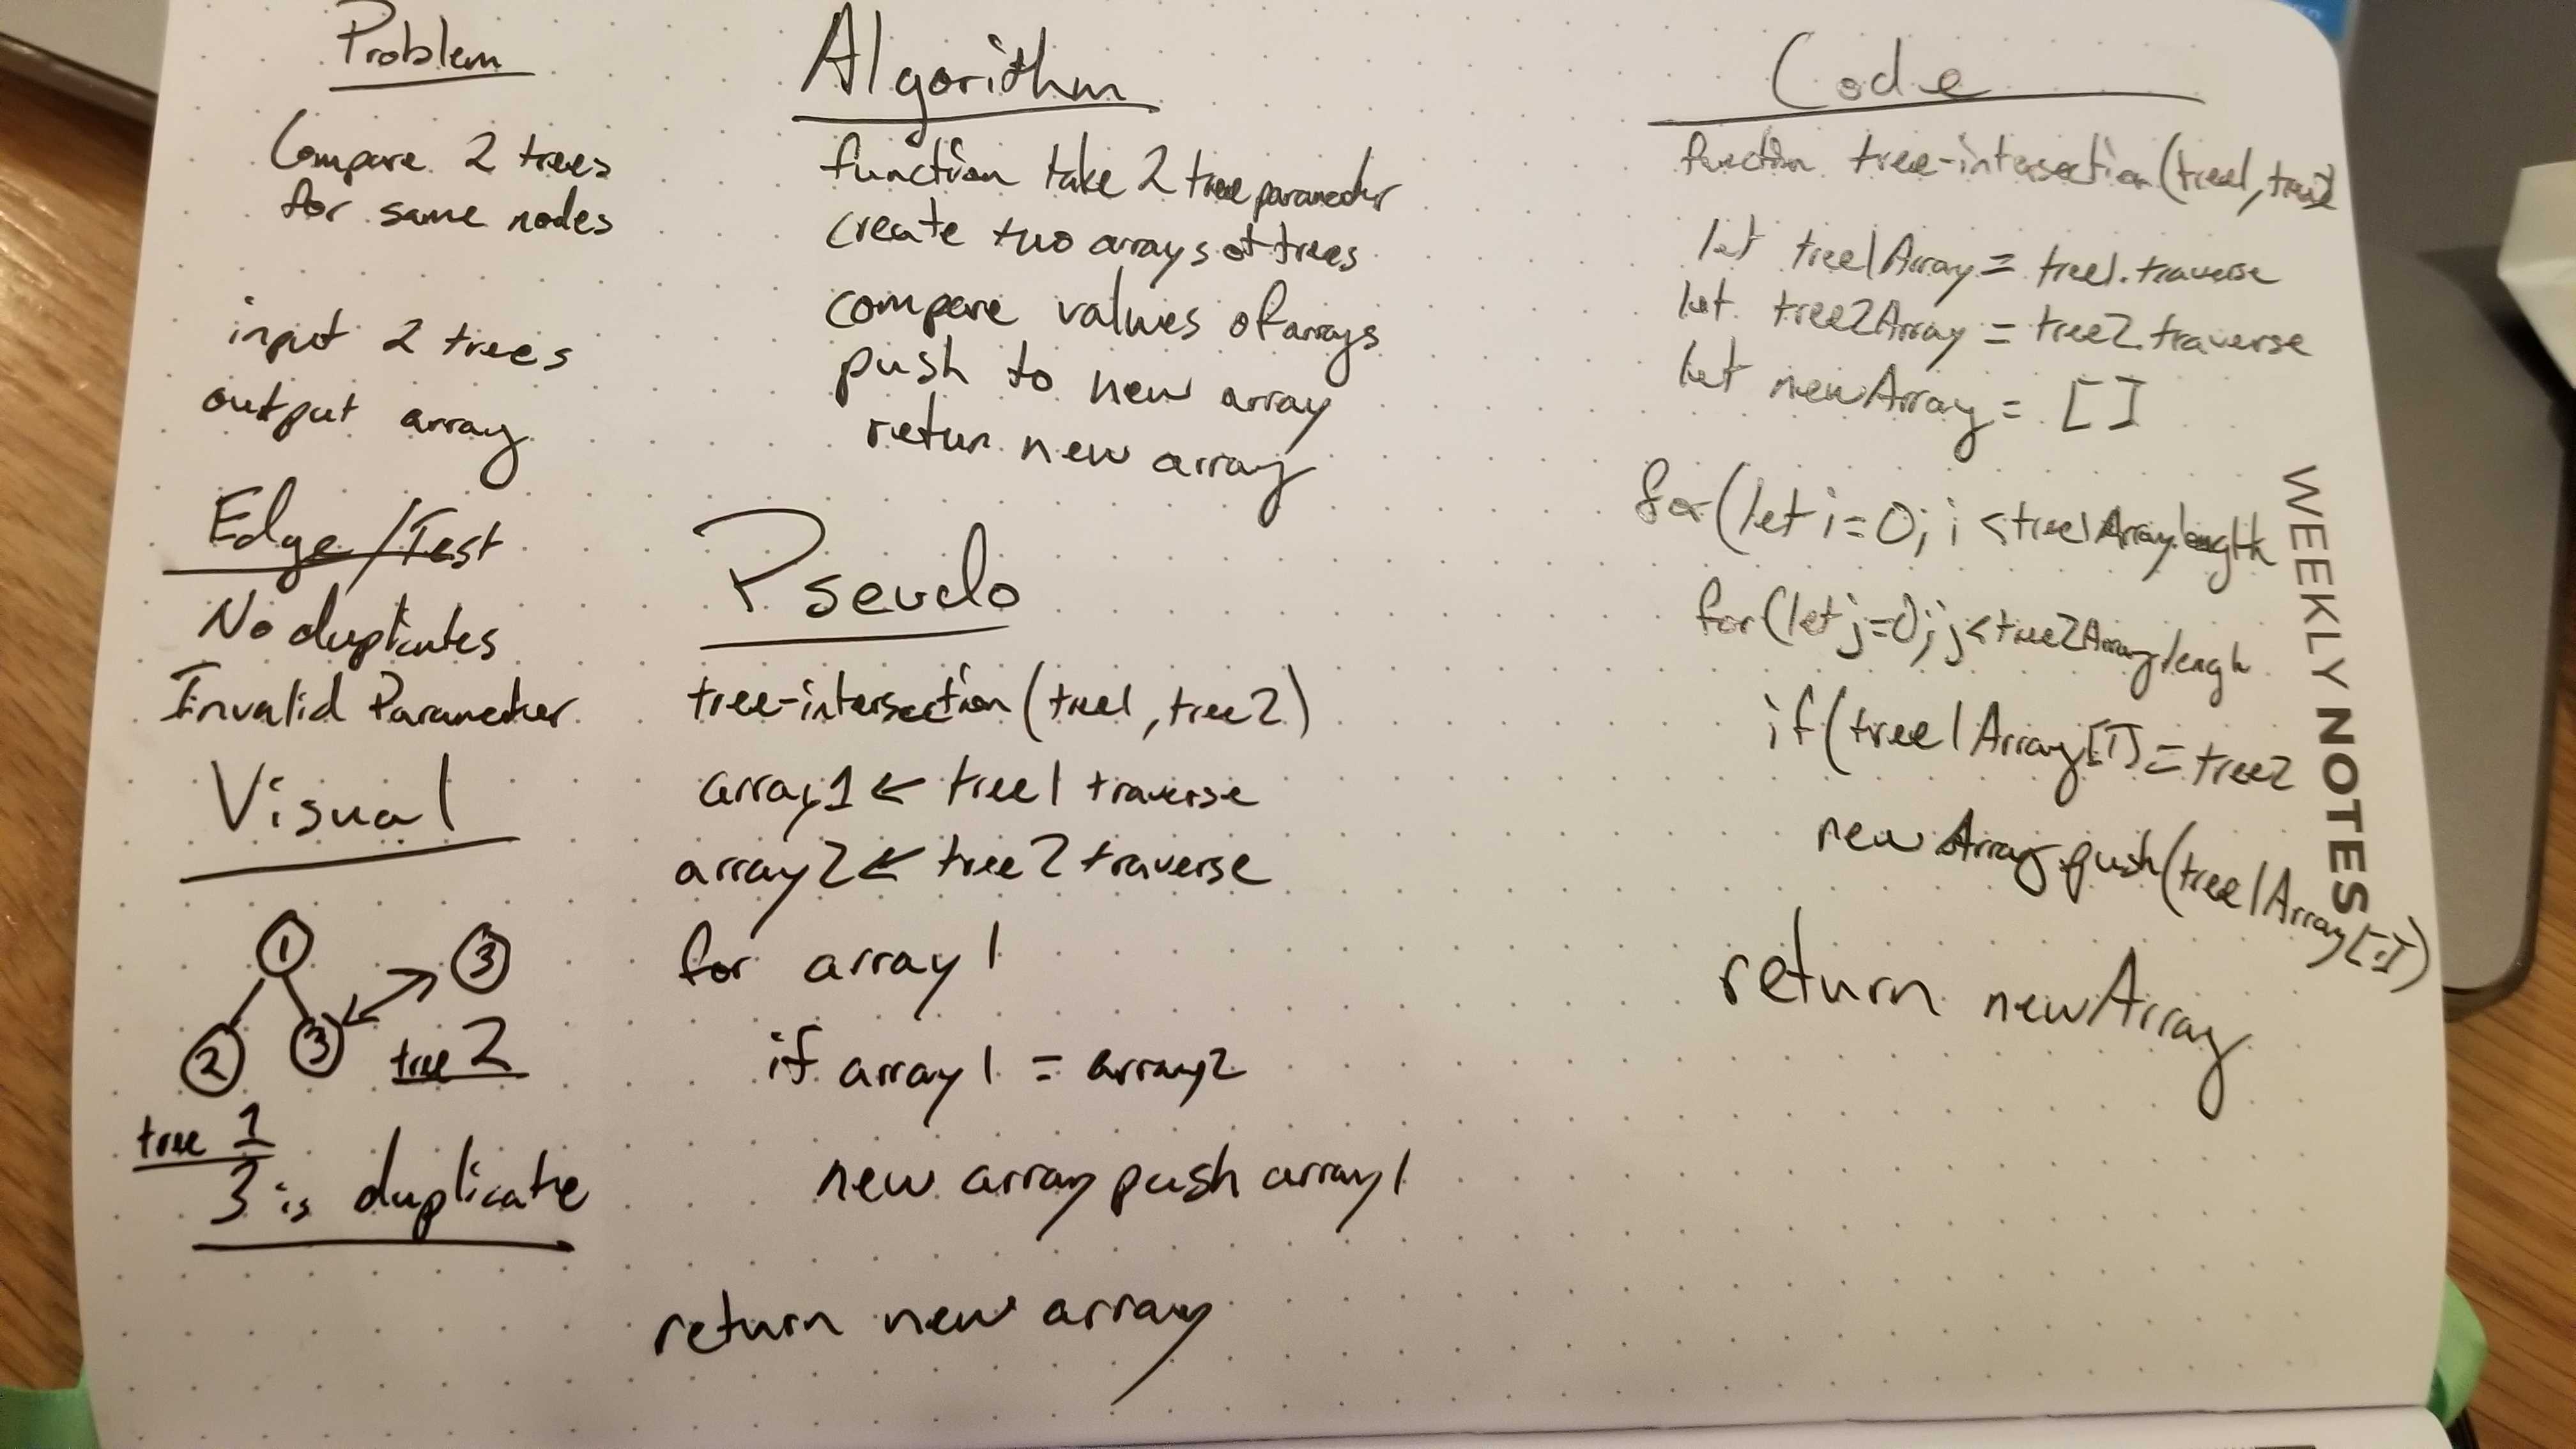 Problem
Compare 2 trees
for same nodes
input 2 trees
output array
Edge/Test
No duplicates
Invalid Parameter
Visual
1
3
2
3
tree 2
tree 1
3 is duplicate
Algorithm
function take 2 tree parameter
create two arrays of trees
compare values of arrays
push to new array
return new array
Pseudo
tree-intersection(tree1, tree2)
array1 ← tree1 traverse
array2 ← tree2 traverse
for array1
if array1 = array2
new array push array1
return new array
Code
function tree-intersection(tree1, tree2
let tree1Array = tree1.traverse
let tree2Array = tree2.traverse
let newArray = []
for(let i=0; i <tree1Array.length
for(let j=0; j<tree2Array.lengh
if(tree1Array[i] = tree2
newArray.push(tree1Array[i])
return newArray
WEEKLY NOTES